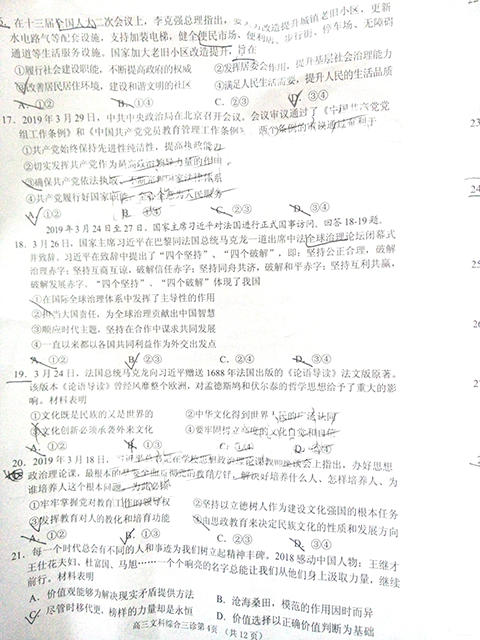 在十三届全国人大二次会议上，李克强总理指出，要大力改造提升城镇老旧小区，更新
水电路气等配套设施，支持加装电梯，健全便民市场、便利店、步行街、停车场、无障碍
通道等生活服务设施。国家加大老旧小区改造提升，旨在
①履行社会建设职能，不断提高政府的权威 ②发挥居委会作用，提升基层社会治理能力
③改善居民居住环境，建设和谐文明的社区 ④满足人民生活需要，提升人民的生活品质
A．①② B．①③ C．②③ D．③④
17．2019年3月29日，中共中央政治局在北京召开会议。会议审议通过了《中国共产党党
组工作条例》和《中国共产党党员教育管理工作条例》 两个条例的审议通过有利于
①共产党始终保持先进性纯洁性，提高执政能力
②切实发挥共产党作为最高政治领导力量的作用
③确保共产党依法执政，
④共产党履行好国家职 为人民服务
A．①② C．②③ D．③④
2019年3月24日至27日，国家主席习近平对法国进行正式国事访问。回答18-19题。
18．3月26日，国家主席习近平在巴黎同法国总统马克龙一道出席中法全球治理论坛闭幕式
并致辞。习近平在致辞中提出了“四个坚持”、“四个破解”，即：坚持公正合理，破解
治理赤字；坚持互商互谅，破解信任赤字；坚持同舟共济，破解和平赤字；坚持互利共赢，
破解发展赤字。“四个坚持”、“四个破解”体现了我国
①在国际全球治理体系中发挥了主导性的作用
②担当大国责任，为全球治理贡献出中国智慧
③顺应时代主题，坚持在合作中谋求共同发展
④一直以来都以各国共同利益作为外交出发点
A．①② B．②③ C．②④ D．③④
19．3月24日，法国总统马克龙向习近平赠送1688年法国出版的《论语导读》法文版原著。
该版本《论语导读》曾经风靡整个欧洲，对孟德斯鸠和伏尔泰的哲学思想给予了重大的影
响。材料表明
①文化既是民族的又是世界的 ②中华文化得到世界人民的广泛认同
③文化创新必须承袭外来文化 ④要牢固树立高度的文化自觉和自信
A．①② B．①③ D．③④
20．2019年3月18日， 在学校思想政治理论课教师座谈会上指出，办好思想
政治理论课，最根本的是要全面贯彻党的教育方针，解决好培养什么人、怎样培养人、为
谁培养人这个根本问题。
①牢牢掌握党对教育工作的领导权 ②坚持以立德树人作为建设文化强国的根本任务
③发挥教育对人的教化和培育功能 ④由思政教育来决定民族文化的性质和发展方向
A．①② B．①③ C．②④ D．③④
21．每一个时代总会有不同的人和事迹为我们树立起精神丰碑。2018感动中国人物：王继才
王仕花夫妇、杜富国、马旭……一个个响亮的名字总能让我们从他们身上汲取力量，继续
前行。材料表明
A．价值观能够为解决现实矛盾提供方法 B．沧海桑田，模范的作用因时而异
C．尽管时移代更，榜样的力量却是永恒 D．价值选择以正确价值判断为基础
高三文科综合三诊第4页（共12页）